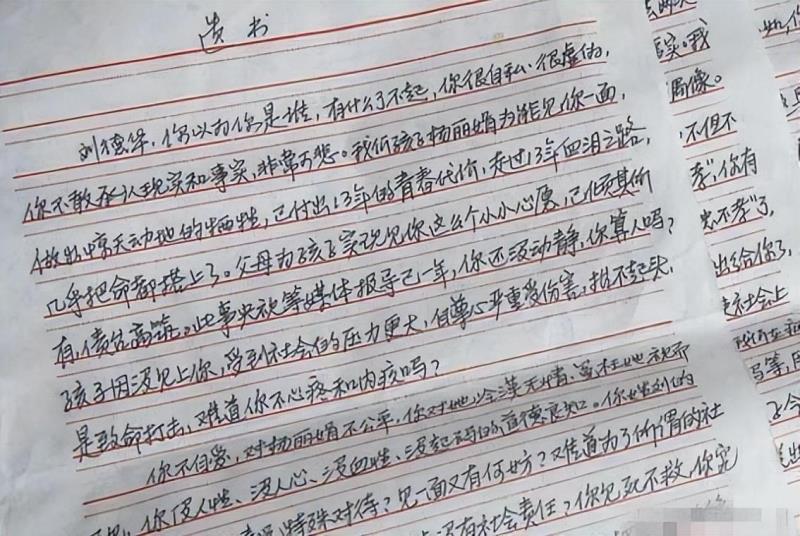 遗书
刘德华,你以为你是谁,有什么了不起,你很自私、很虚伪,
你不敢承认现实和事实,非常可悲。我们孩子杨丽娟为能见你一面,
做出惊天动地的牺牲,已付出13年的青春代价,走过13年血泪之路,
几乎把命都搭上了。父母为孩子实现见你这么个小小心愿,已倾其所
有,债台高筑。此事央视等媒体报导已一年,你还没动静,你算人吗?
孩子因没见上你,受到社会的压力更大,自尊心严重受伤害,抬不起头,
是致命打击,难道你不心疼和内疚吗?
你不自爱,对杨丽娟不公平,你对她冷漠无情、
你没人性、没人心、没血性、没起码的道德良知。你
特殊对待?见一面又有何妨?难道为了所谓的社
没有社会责任?你见死不救,你
实。我
偶像。
不但不
孝",你有
不孝"了,
出给你了,
社会上
等,